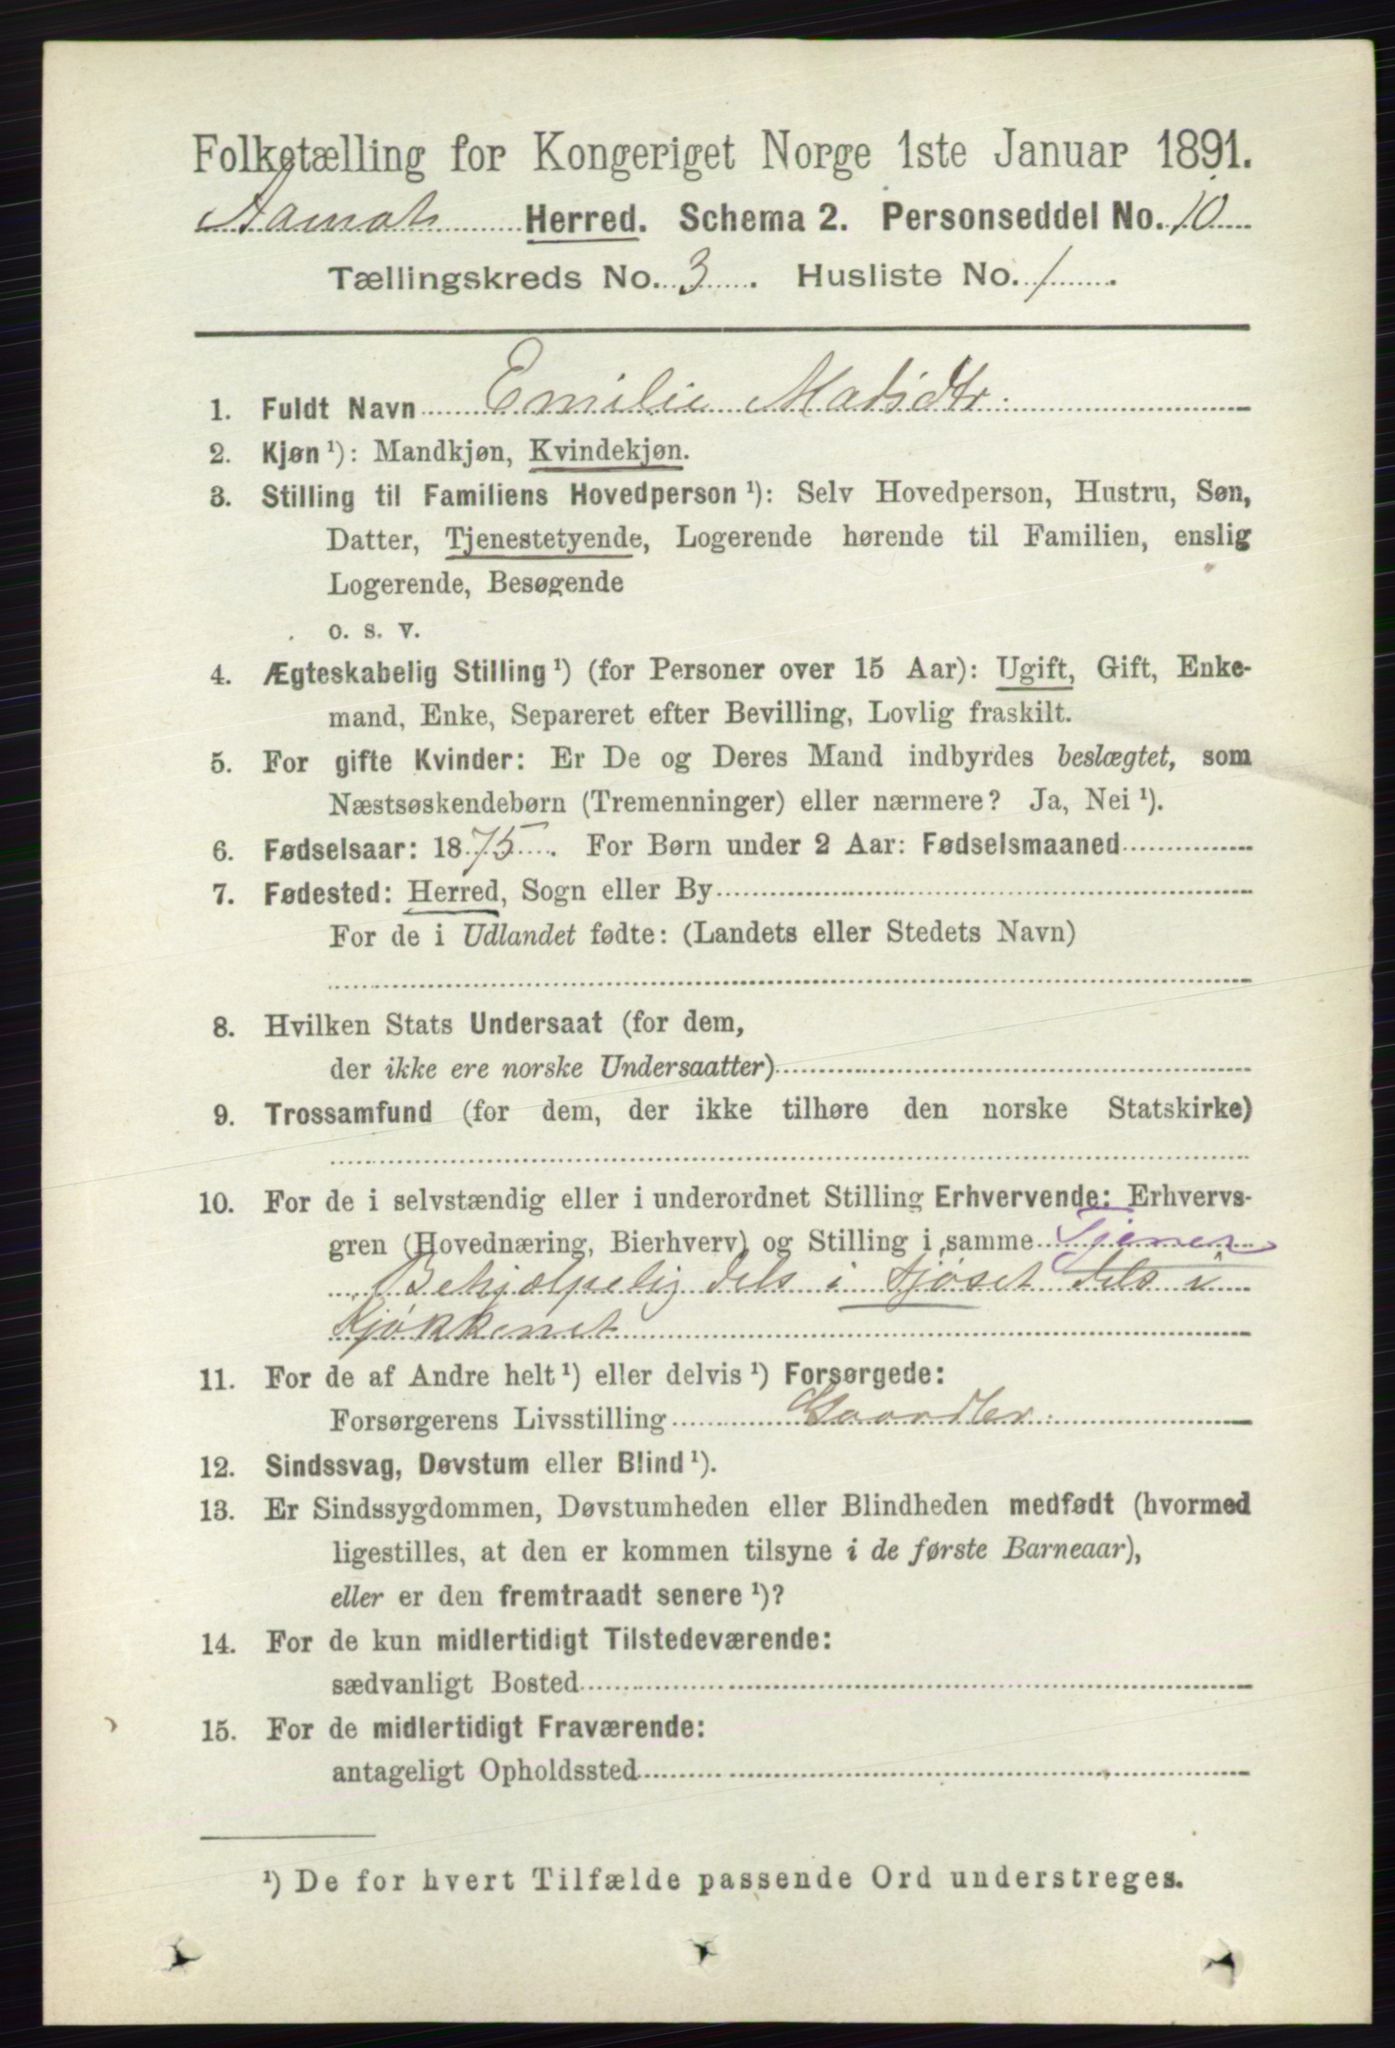 Folketælling for Kongeriget Norge 1ste Januar 1891.
Aamot Herred. Schema 2. Personseddel No. 10
Tællingskreds No. 3. Husliste No. 1.
1. Fuldt Navn Emilie Matsdtr.
2. Kjøn ¹): Mandkjøn, Kvindekjøn.
3. Stilling til Familiens Hovedperson ¹): Selv Hovedperson, Hustru, Søn,
Datter, Tjenestetyende, Logerende hørende til Familien, enslig
Logerende, Besøgende
o. s. v.
4. Ægteskabelig Stilling ¹) (for Personer over 15 Aar): Ugift, Gift, Enke-
mand, Enke, Separeret efter Bevilling, Lovlig fraskilt.
5. For gifte Kvinder: Er De og Deres Mand indbyrdes beslægtet, som
Næstsøskendebørn (Tremenninger) eller nærmere? Ja, Nei ¹).
6. Fødselsaar: 1875. For Børn under 2 Aar: Fødselsmaaned
7. Fødested: Herred, Sogn eller By
For de i Udlandet fødte: (Landets eller Stedets Navn)
8. Hvilken Stats Undersaat (for dem,
der ikke ere norske Undersaatter)
9. Trossamfund (for dem, der ikke tilhøre den norske Statskirke)
10. For de i selvstændig eller i underordnet Stilling Erhvervende: Erhvervs-
gren (Hovednæring, Bierhverv) og Stilling i samme Tjener
Behjælpelig dels i fjøset dels i
Kjøkkenet
11. For de af Andre helt ¹) eller delvis ¹) Forsørgede:
Forsørgerens Livsstilling
12. Sindssvag, Døvstum eller Blind ¹).
13. Er Sindssygdommen, Døvstumheden eller Blindheden medfødt (hvormed
ligestilles, at den er kommen tilsyne i de første Barneaar),
eller er den fremtraadt senere ¹)?
14. For de kun midlertidigt Tilstedeværende:
sædvanligt Bosted
15. For de midlertidigt Fraværende:
antageligt Opholdssted
¹) De for hvert Tilfælde passende Ord understreges.